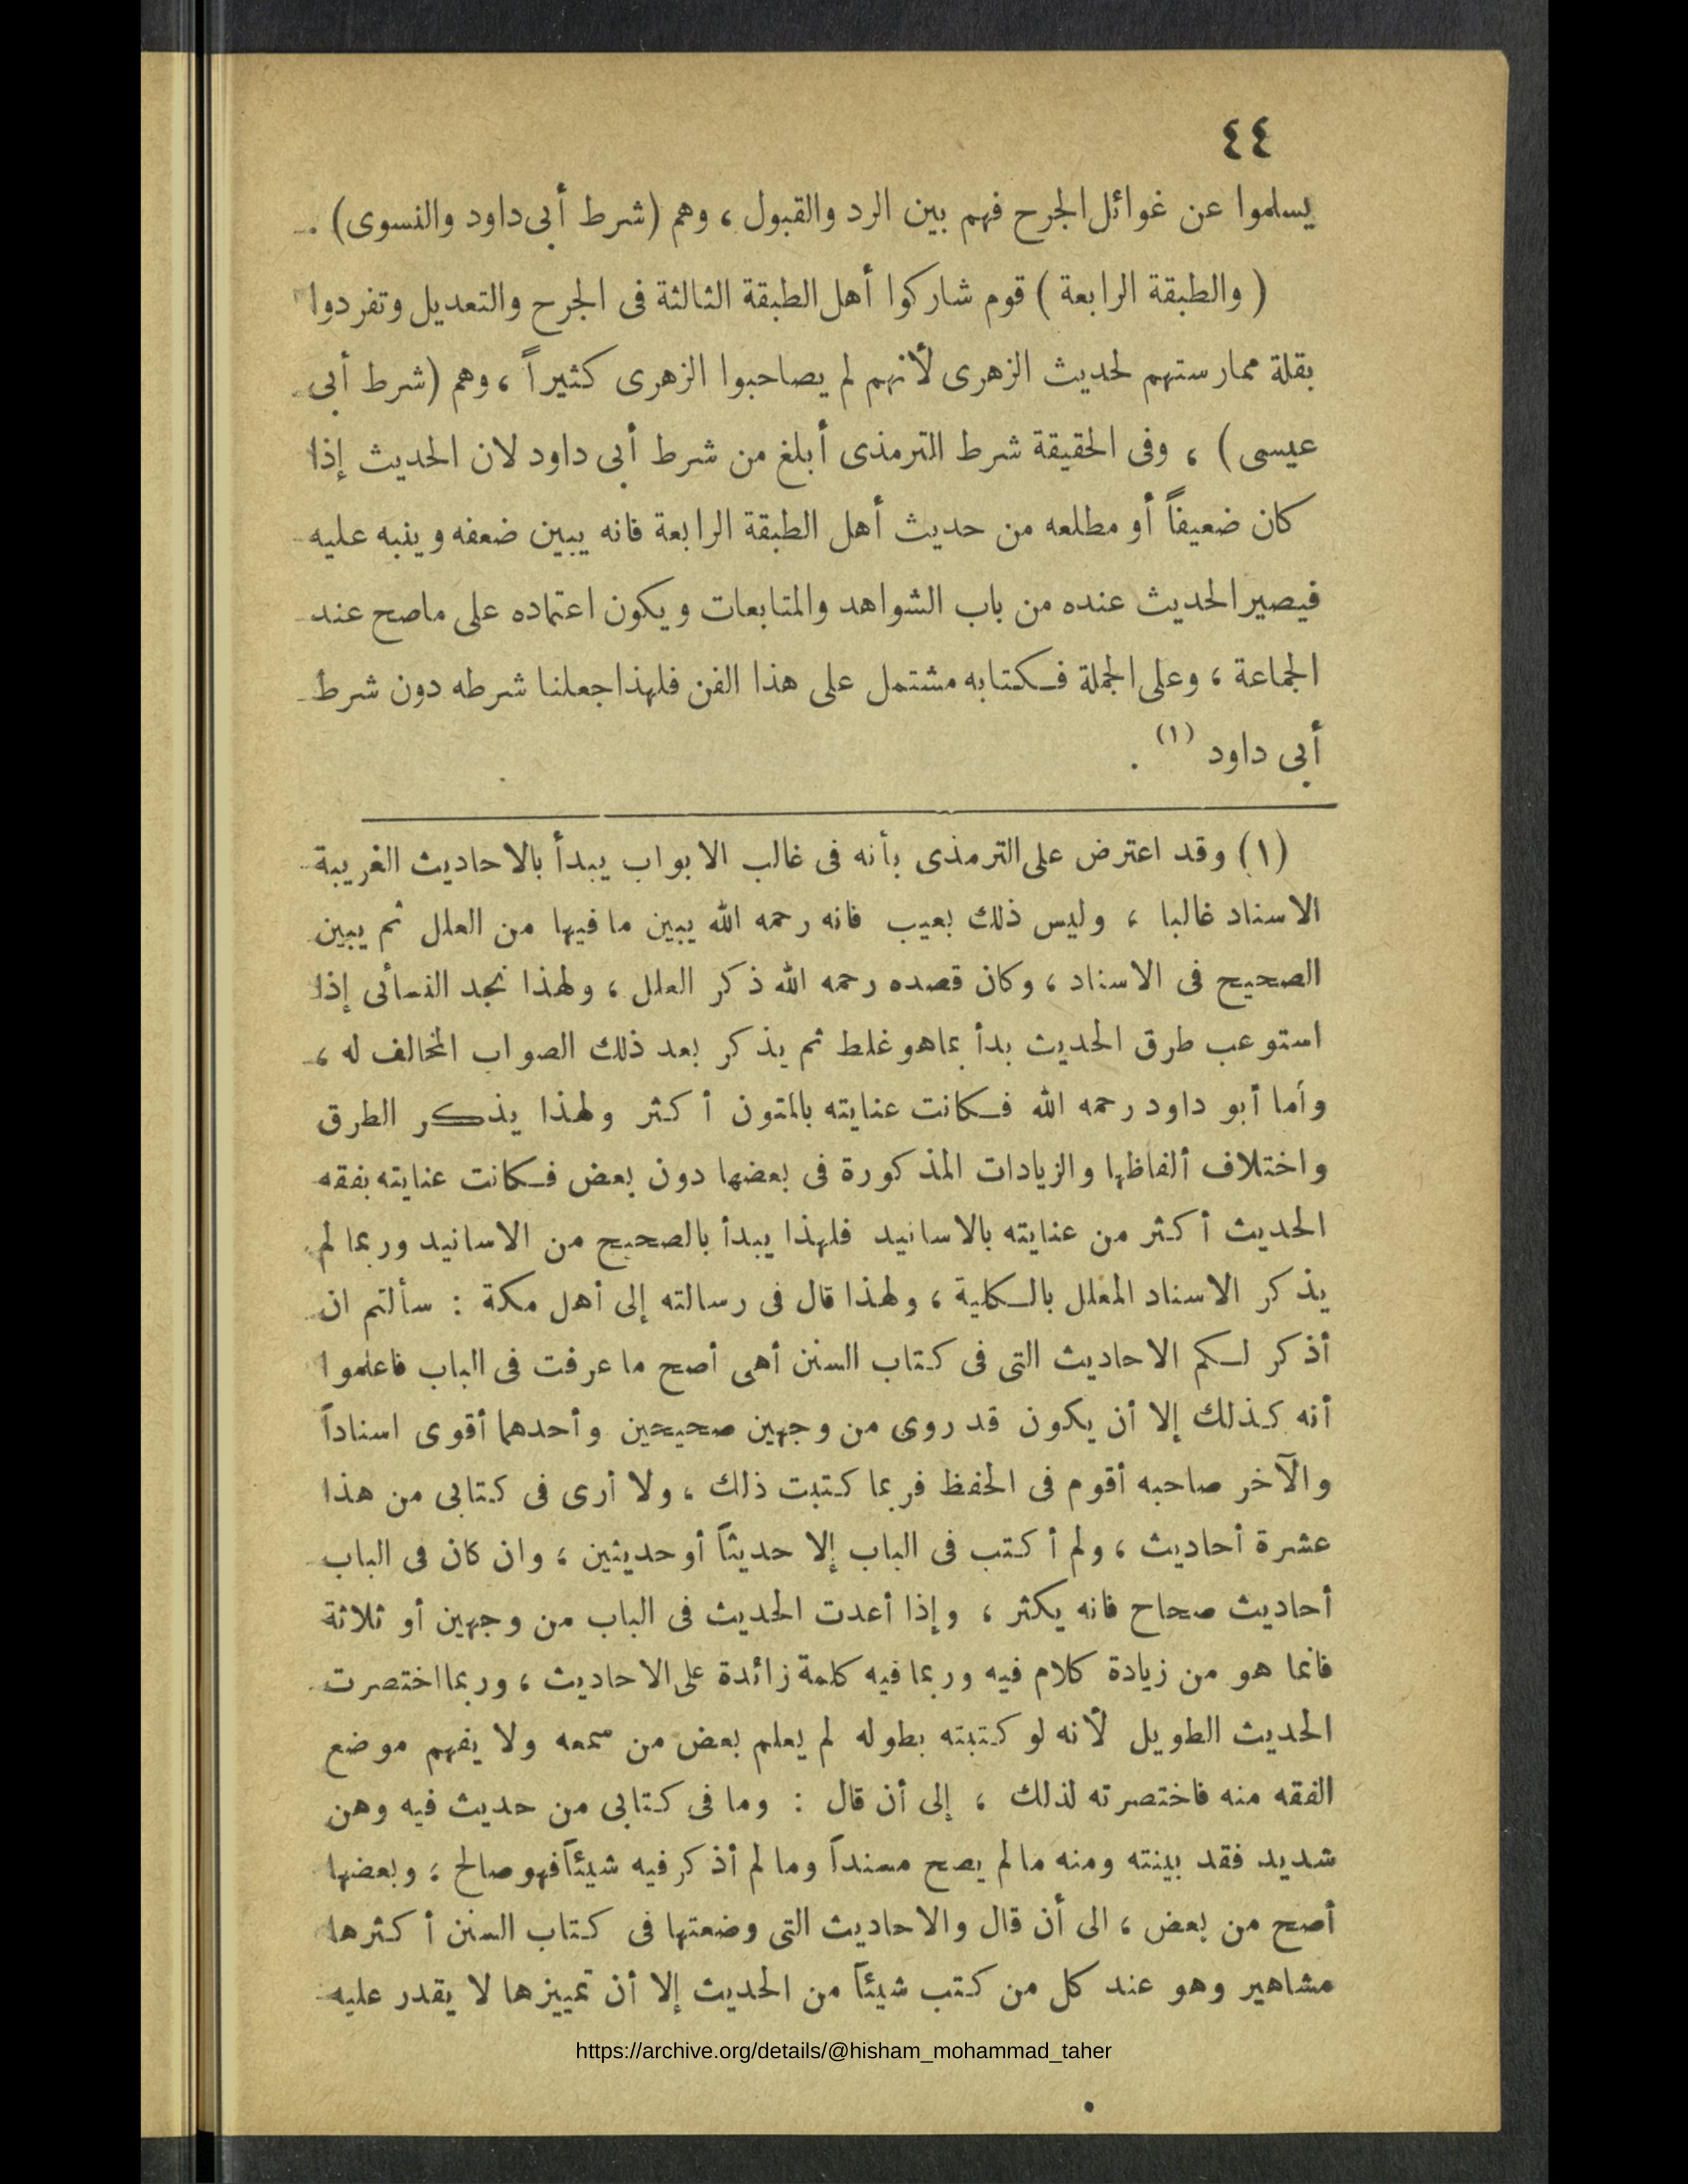 ٤٤
يسلموا عن غوائل الجرح فهم بين الرد والقبول ، وهم (شرط أبى داود والنسوى) .
( والطبقة الرابعة ) قوم شاركوا أهل الطبقة الثالثة فى الجرح والتعديل وتفردوا
بقلة ممارستهم لحديث الزهرى لأنهم لم يصاحبوا الزهرى كثيراً ، وهم (شرط أبى
عيسى) ، وفى الحقيقة شرط الترمذى أبلغ من شرط أبى داود لان الحديث إذا
كان ضعيفاً أو مطلعه من حديث أهل الطبقة الرابعة فانه يبين ضعفه وينبه عليه
فيصير الحديث عنده من باب الشواهد والمتابعات ويكون اعتماده على ماصح عند
الجماعة ، وعلى الجملة فكتابه مشتمل على هذا الفن فلهذا جعلنا شرطه دون شرط
أبى داود (١) .
(١) وقد اعترض على الترمذى بأنه فى غالب الابواب يبدأ بالاحاديث الغريبة
الاسناد غالبا ، وليس ذلك بعيب فانه رحمه الله يبين ما فيها من العلل ثم يبين
الصحيح فى الاسناد ، وكان قصده رحمه الله ذكر العلل ، ولهذا نجد النسائى إذا
استوعب طرق الحديث بدأ بماهو غلط ثم يذكر بعد ذلك الصواب المخالف له ،
وأما أبو داود رحمه الله فكانت عنايته بالمتون أكثر ولهذا يذكر الطرق
واختلاف ألفاظها والزيادات المذكورة فى بعضها دون بعض فكانت عنايته بفقه
الحديث أكثر من عنايته بالاسانيد فلهذا يبدأ بالصحيح من الاسانيد وربما لم
يذكر الاسناد المعلل بالكلية ، ولهذا قال فى رسالته إلى أهل مكة : سألتم ان
أذكر لكم الاحاديث التى فى كتاب السنن أهى أصح ما عرفت فى الباب فاعلموا
أنه كذلك إلا أن يكون قد روى من وجهين صحيحين وأحدهما أقوى اسناداً
والآخر صاحبه أقوم فى الحفظ فربما كتبت ذلك ، ولا أرى فى كتابى من هذا
عشرة أحاديث ، ولم أكتب فى الباب إلا حديثاً أو حديثين ، وان كان فى الباب
أحاديث صحاح فانه يكثر ، وإذا أعدت الحديث فى الباب من وجهين أو ثلاثة
فانما هو من زيادة كلام فيه وربما فيه كلمة زائدة على الاحاديث ، وربما اختصرت
الحديث الطويل لأنه لو كتبته بطوله لم يعلم بعض من سمعه ولا يفهم موضع
الفقه منه فاختصرته لذلك ، إلى أن قال : وما فى كتابى من حديث فيه وهن
شديد فقد بينته ومنه مالم يصح مسنداً وما لم أذكر فيه شيئاً فهو صالح ، وبعضها
أصح من بعض ، الى أن قال والاحاديث التى وضعتها فى كتاب السنن أكثرها
مشاهير وهو عند كل من كتب شيئاً من الحديث إلا أن تمييزها لا يقدر عليه
https://archive.org/details/@hisham_mohammad_taher